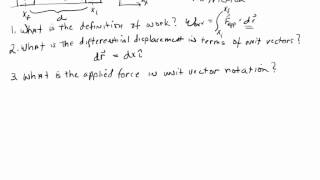 x_f d x_i
1. What is the definition of work? W_{Ncf} = ∫_{x_i}^{x_f} F⃗_{app} · dr⃗
2. What is the differential displacement in terms of unit vectors?
dr⃗ = dx î
3. What is the applied force in unit vector notation?